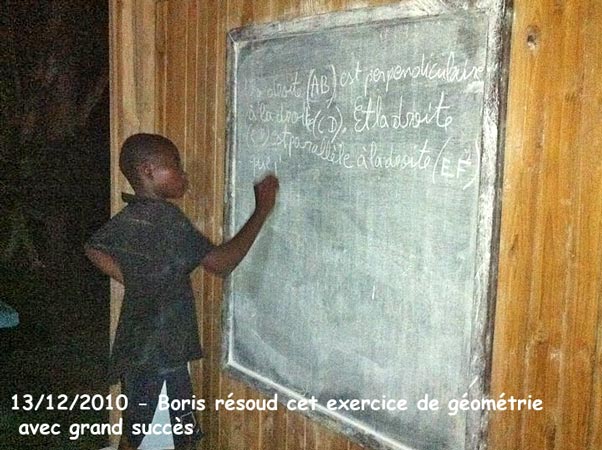 droit (AB) est perpendiculaire
à la droite (CD). Et la droite
(CD) est parallèle à la droite (EF)
13/12/2010 - Boris résoud cet exercice de géométrie
avec grand succès